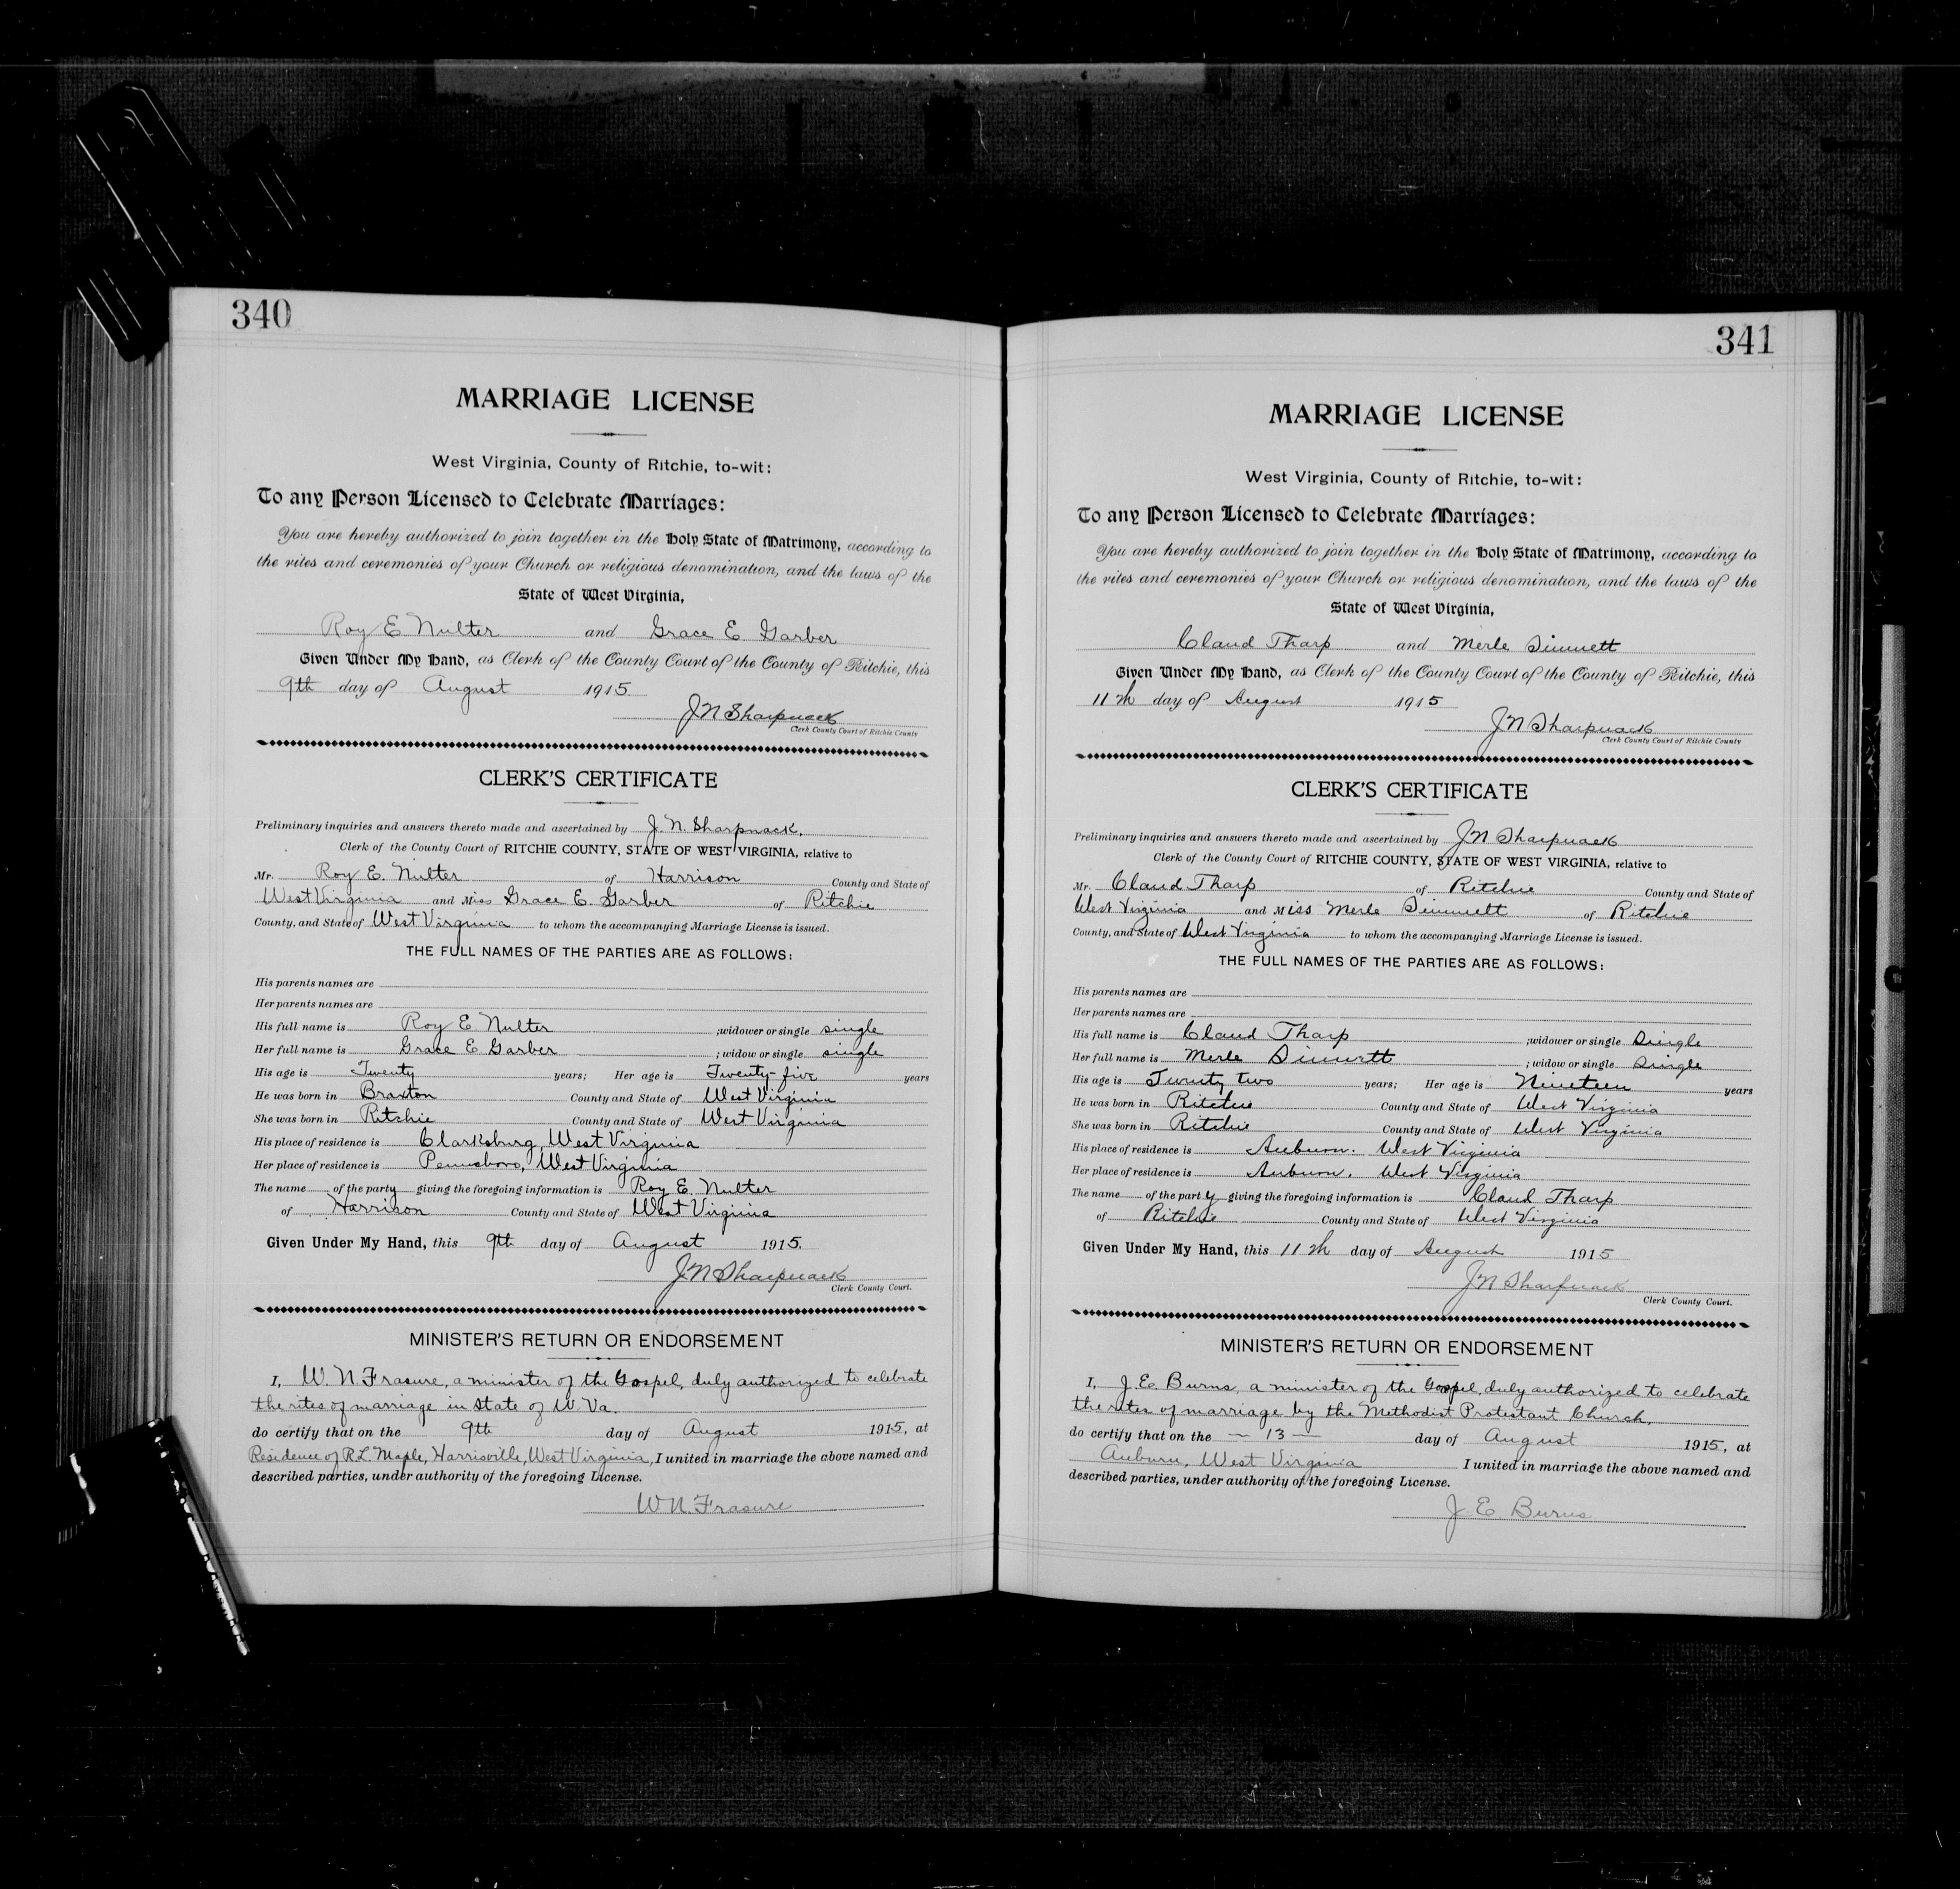 340
MARRIAGE LICENSE
West Virginia, County of Ritchie, to-wit:
To any Person Licensed to Celebrate Marriages:
You are hereby authorized to join together in the Holy State of Matrimony, according to
the rites and ceremonies of your Church or religious denomination, and the laws of the
State of West Virginia,
Roy E Nulter and Grace E. Garber
Given Under My Hand, as Clerk of the County Court of the County of Ritchie, this
9th day of August 1915
J N Sharpnack
Clerk County Court of Ritchie County
CLERK'S CERTIFICATE
Preliminary inquiries and answers thereto made and ascertained by J. N. Sharpnack,
Clerk of the County Court of RITCHIE COUNTY, STATE OF WEST VIRGINIA, relative to
Mr. Roy E. Nulter of Harrison County and State of
West Virginia and Miss Grace E. Garber of Ritchie
County, and State of West Virginia to whom the accompanying Marriage License is issued.
THE FULL NAMES OF THE PARTIES ARE AS FOLLOWS:
His parents names are
Her parents names are
His full name is Roy E. Nulter ;widower or single single
Her full name is Grace E Garber ; widow or single single
His age is Twenty years; Her age is Twenty-five years
He was born in Braxton County and State of West Virginia
She was born in Ritchie County and State of West Virginia
His place of residence is Clarksburg, West Virginia
Her place of residence is Pennsboro, West Virginia
The name of the party giving the foregoing information is Roy E. Nulter
of Harrison County and State of West Virginia
Given Under My Hand, this 9th day of August 1915.
J N Sharpnack
Clerk County Court.
MINISTER'S RETURN OR ENDORSEMENT
I, W. N. Frasure, a minister of the Gospel, duly authorized to celebrate
the rites of marriage in State of W. Va.
do certify that on the 9th day of August 1915, at
Residence of R.L. Maple, Harrisville, West Virginia, I united in marriage the above named and
described parties, under authority of the foregoing License.
W. N. Frasure
341
MARRIAGE LICENSE
West Virginia, County of Ritchie, to-wit:
To any Person Licensed to Celebrate Marriages:
You are hereby authorized to join together in the Holy State of Matrimony, according to
the rites and ceremonies of your Church or religious denomination, and the laws of the
State of West Virginia,
Claud Tharp and Merle Sinnett
Given Under My Hand, as Clerk of the County Court of the County of Ritchie, this
11th day of August 1915
J N Sharpnack
Clerk County Court of Ritchie County
CLERK'S CERTIFICATE
Preliminary inquiries and answers thereto made and ascertained by J N Sharpnack
Clerk of the County Court of RITCHIE COUNTY, STATE OF WEST VIRGINIA, relative to
Mr. Claud Tharp of Ritchie County and State of
West Virginia and Miss Merle Sinnett of Ritchie
County, and State of West Virginia to whom the accompanying Marriage License is issued.
THE FULL NAMES OF THE PARTIES ARE AS FOLLOWS:
His parents names are
Her parents names are
His full name is Claud Tharp ;widower or single Single
Her full name is Merle Sinnett ; widow or single Single
His age is Twenty two years; Her age is Nineteen years
He was born in Ritchie County and State of West Virginia
She was born in Ritchie County and State of West Virginia
His place of residence is Auburn. West Virginia
Her place of residence is Auburn. West Virginia
The name of the party giving the foregoing information is Claud Tharp
of Ritchie County and State of West Virginia
Given Under My Hand, this 11th day of August 1915
J N Sharpnack
Clerk County Court.
MINISTER'S RETURN OR ENDORSEMENT
I, J. E. Burns, a minister of the Gospel, duly authorized to celebrate
the rites of marriage by the Methodist Protestant Church,
do certify that on the — 13 — day of August 1915, at
Auburn, West Virginia I united in marriage the above named and
described parties, under authority of the foregoing License.
J. E. Burns